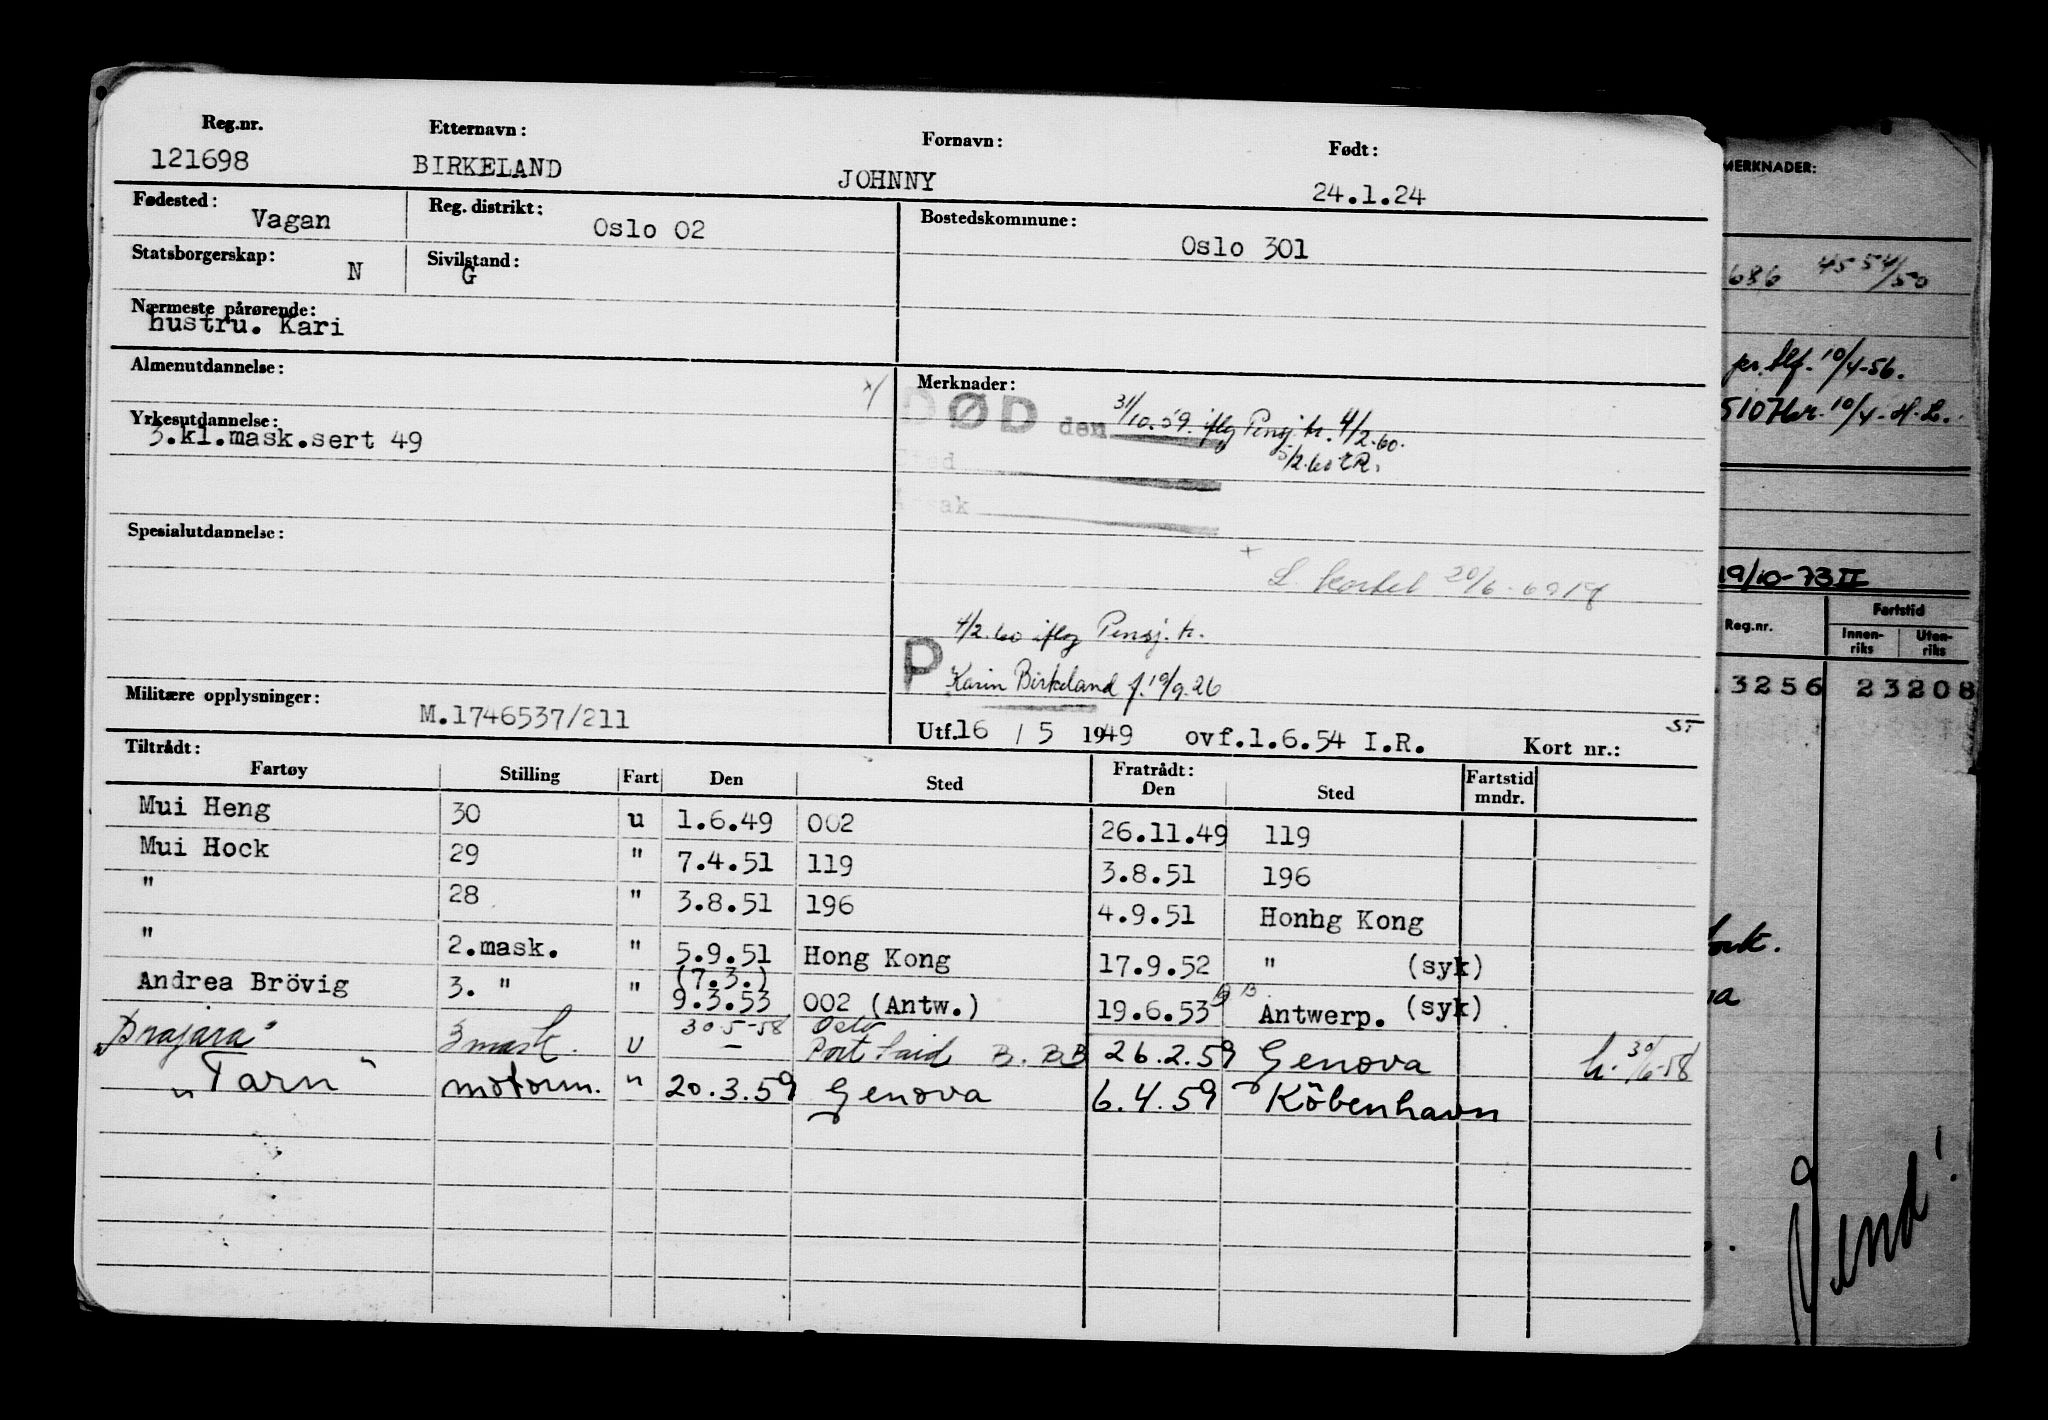 Reg.nr. Etternavn: Fornavn: Født:
121698 BIRKELAND JOHNNY 24.1.24
Fødested: Vagan Reg. distrikt: Oslo 02 Bostedskommune: Oslo 301
Statsborgerskap: N Sivilstand: G
Nærmeste pårørende:
hustru. Kari
Almenutdannelse: Merknader:
DØD den 31/10.59. iflg Pensj.tr. 4/2.60.
5/2.60 ER.
Yrkesutdannelse:
3.kl.mask.sert 49
Sted
Årsak
Spesialutdannelse:
20/6-69
4/2.60 iflg Pensj.tr.
P Karin Birkeland f. 19/9.26
Militære opplysninger: M.1746537/211
Utf.16 / 5 1949 ovf.1.6.54 I.R. Kort nr.: ST
Tiltrådt: Fratrådt:
Fartøy Stilling Fart Den Sted Den Sted Fartstid mndr.
Mui Heng 30 u 1.6.49 002 26.11.49 119
Mui Hock 29 " 7.4.51 119 3.8.51 196
" 28 " 3.8.51 196 4.9.51 Honhg Kong
" 2.mask. " 5.9.51 Hong Kong 17.9.52 " (syk)
Andrea Brövig 3. " " (7.3.) 9.3.53 002 (Antw.) 19.6.53 Antwerp. (syk)
"Brajara" 3 mask. u 30-5-58 Oslo
— Port Said B. BB 26.2.59 Genova h. 30/6-58
"Tarn" motorm. " 20.3.59 Genova 6.4.59 Köbenhavn
MERKNADER:
686 45 54/50
pr. 10/4-56.
5107 kr. 10/4- H.L.
19/10-73 II
Reg.nr. Fartstid
Innen-riks Uten-riks
3256 23208
Vend!